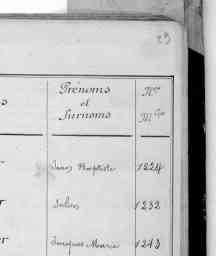 23
Prénoms
et
Surnoms
Nos
Mles
Jean Baptiste 1224
Jules 1232
Jacques Marie 1243